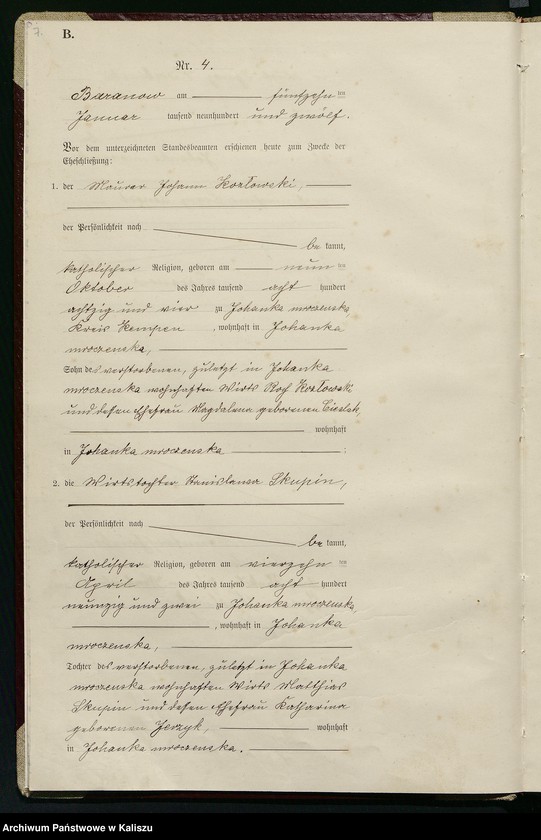 7.
B.
Nr. 4.
Baranow am fünfzehn ten
Januar tausend neunhundert und zwölf.
Vor dem unterzeichneten Standesbeamten erschienen heute zum Zwecke der
Eheschließung:
1. der Maurer Johann Kozłowski,
der Persönlichkeit nach
be kannt,
katholischer Religion, geboren am neun ten
Oktober des Jahres tausend acht hundert
achtzig und vier zu Johanka mroczenska
Kreis Kempen, wohnhaft in Johanka
mroczenska,
Sohn des verstorbenen, zuletzt in Johanka
mroczenska wohnhaften Wirts Roch Kozłowski
und dessen Ehefrau Magdalena geborenen Cieslak,
wohnhaft
in Johanka mroczenska ;
2. die Wirtstochter Stanislawa Skupin,
der Persönlichkeit nach
be kannt,
katholischer Religion, geboren am vierzehn ten
April des Jahres tausend acht hundert
neunzig und zwei zu Johanka mroczenska,
, wohnhaft in Johanka
mroczenska,
Tochter des verstorbenen, zuletzt in Johanka
mroczenska wohnhaften Wirts Matthias
Skupin und dessen Ehefrau Katharina
geborenen Jerzyk, wohnhaft
in Johanka mroczenska.
Archiwum Państwowe w Kaliszu